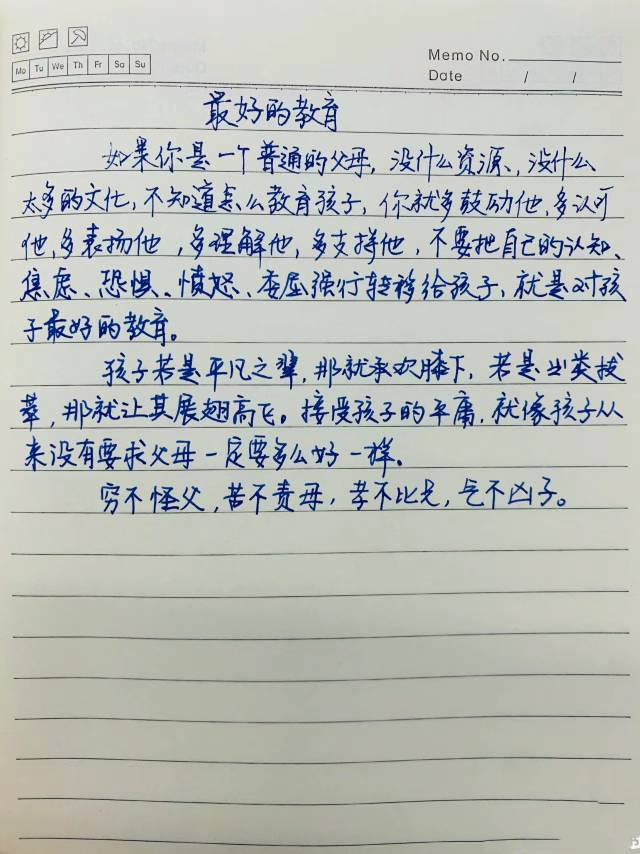 Memo No.
Mo Tu We Th Fr Sa Su
Date / /
最好的教育
如果你是一个普通的父母,没什么资源、没什么
太多的文化,不知道怎么教育孩子,你就多鼓励他,多认可
他,多表扬他,多理解他,多支持他,不要把自己的认知、
焦虑、恐惧、愤怒、委屈强行转移给孩子,就是对孩
子最好的教育。
孩子若是平凡之辈,那就承欢膝下,若是出类拔
萃,那就让其展翅高飞。接受孩子的平庸,就像孩子从
来没有要求父母一定要多么好一样。
穷不怪父,苦不责母,孝不比兄,气不凶子。